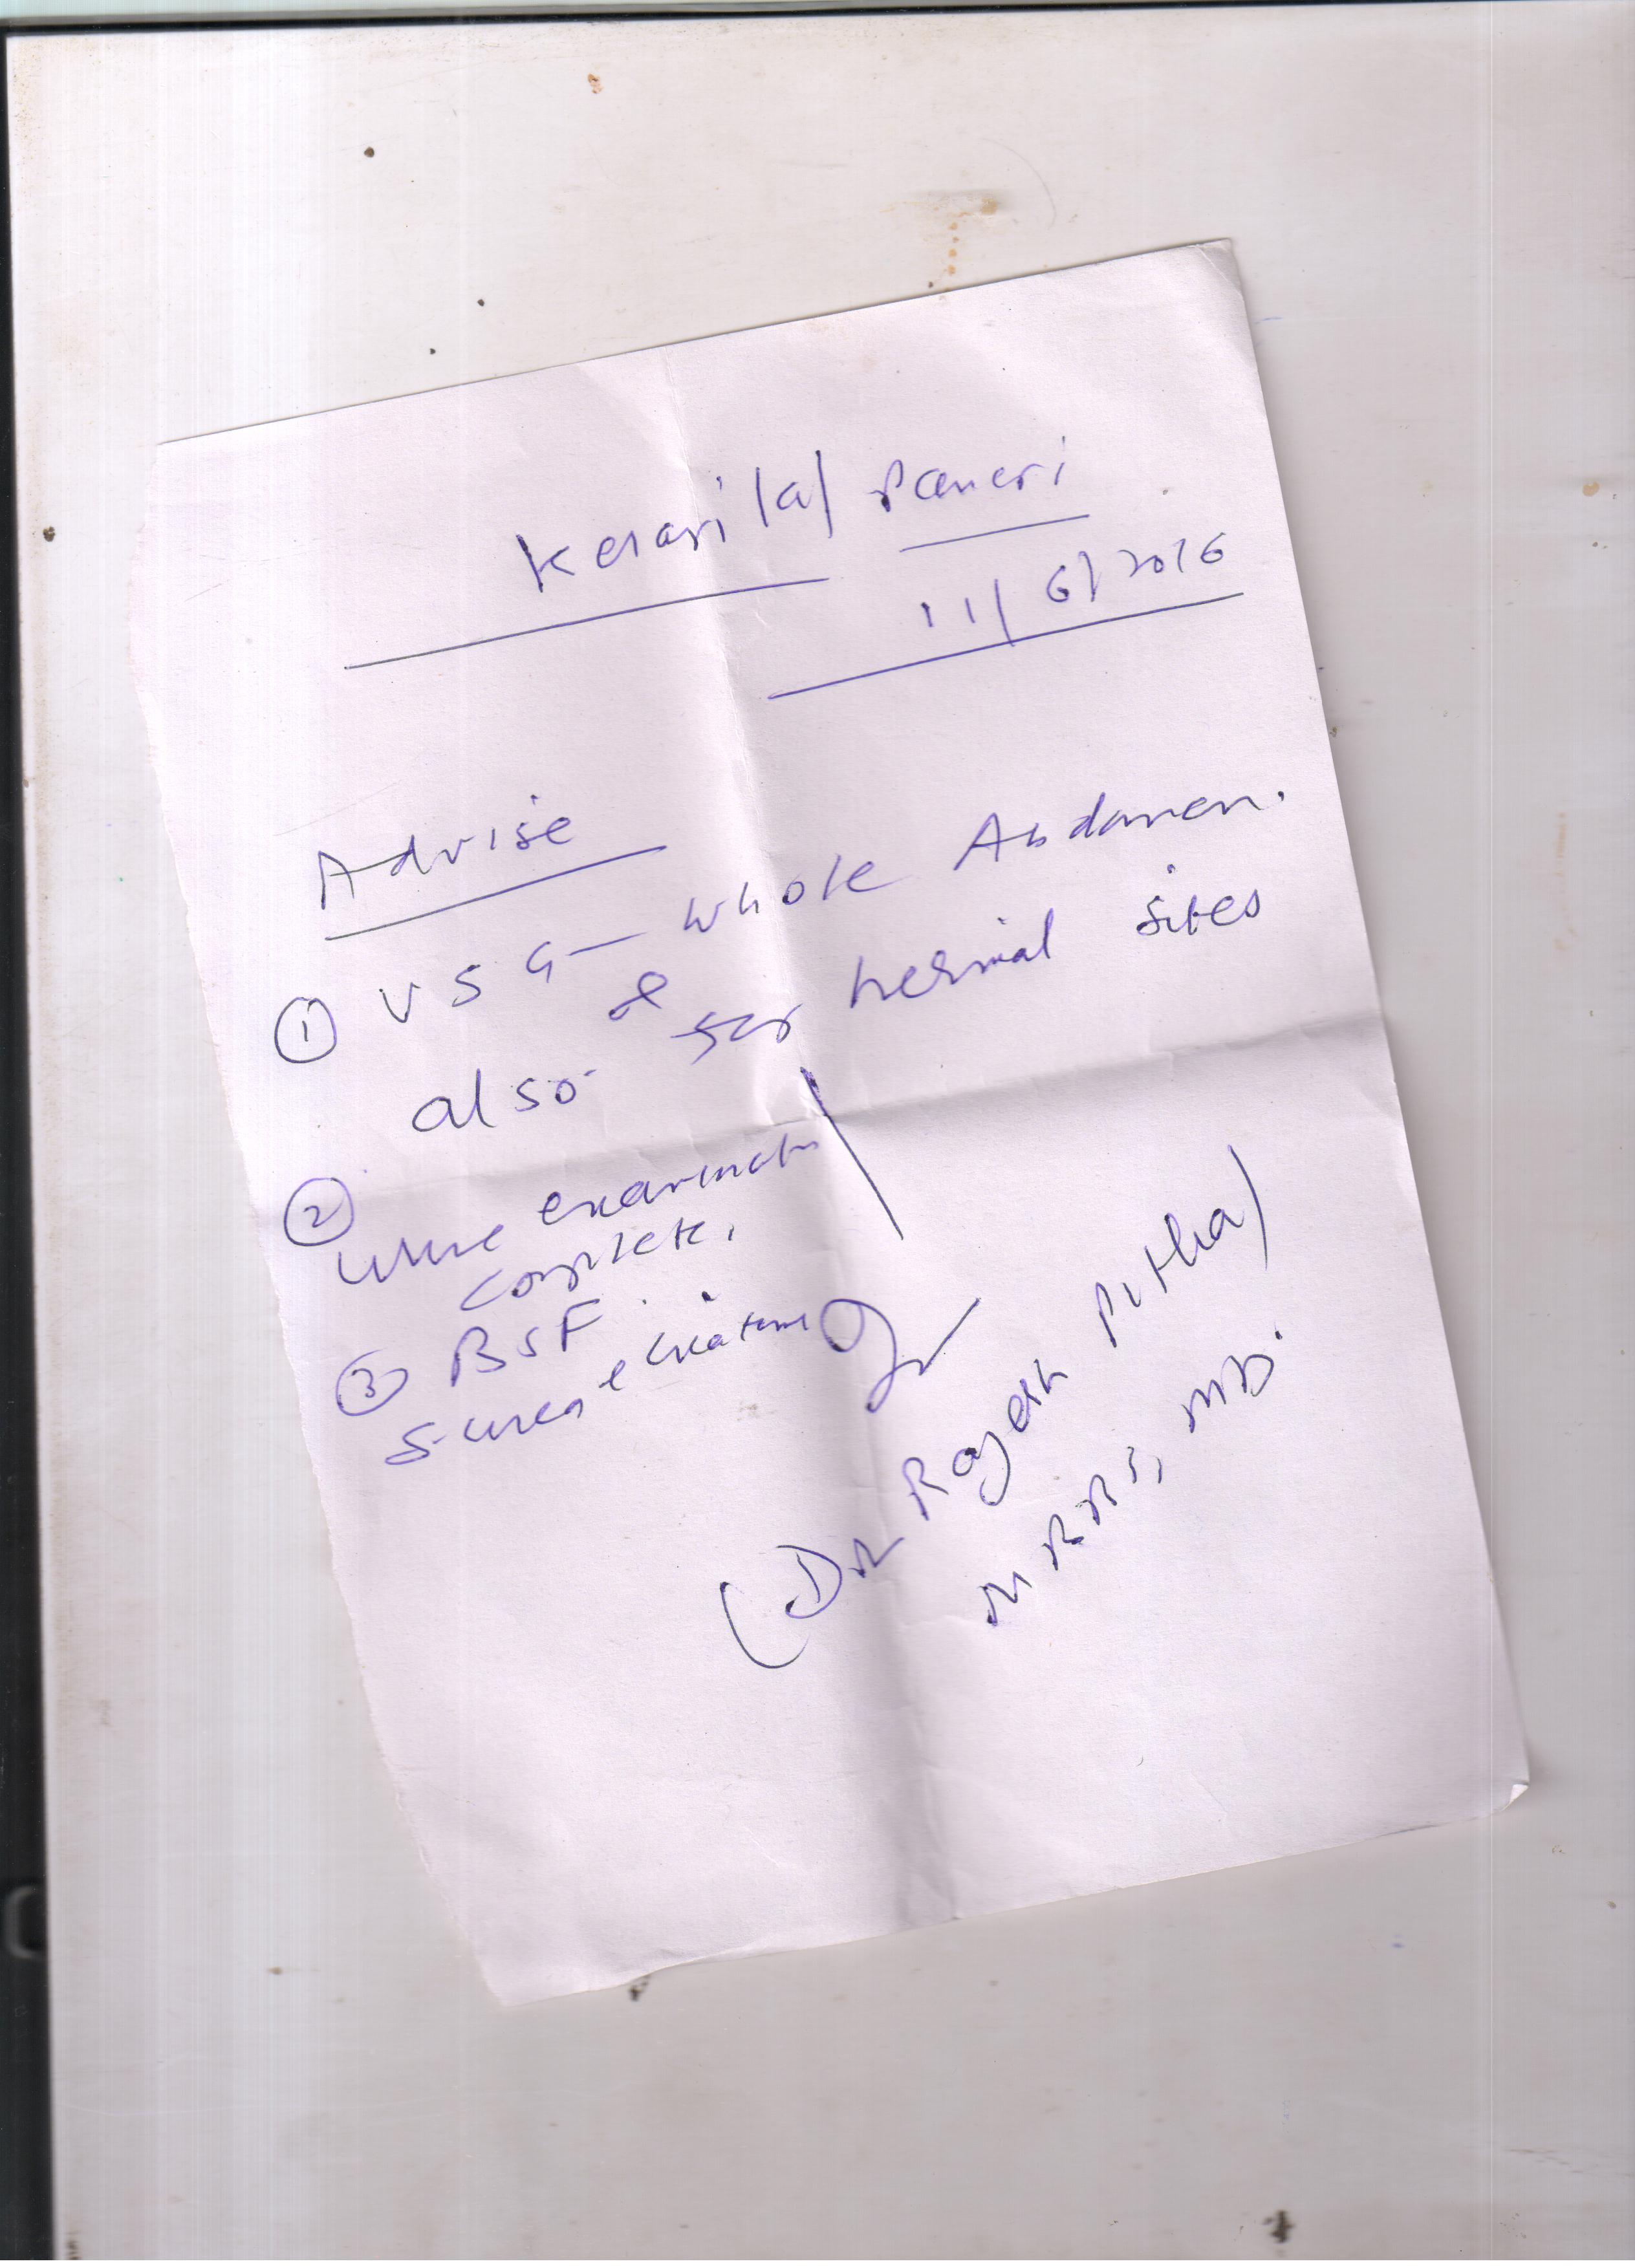 Kesarilal Paneri
11/6/2016
Advise
① USG — Whole Abdomen.
&
also for hernial sites
②
Urine examination
complete.
③ BSF
S. urea creatinine
(Dr Rajesh Putha)
MBBS, MD.